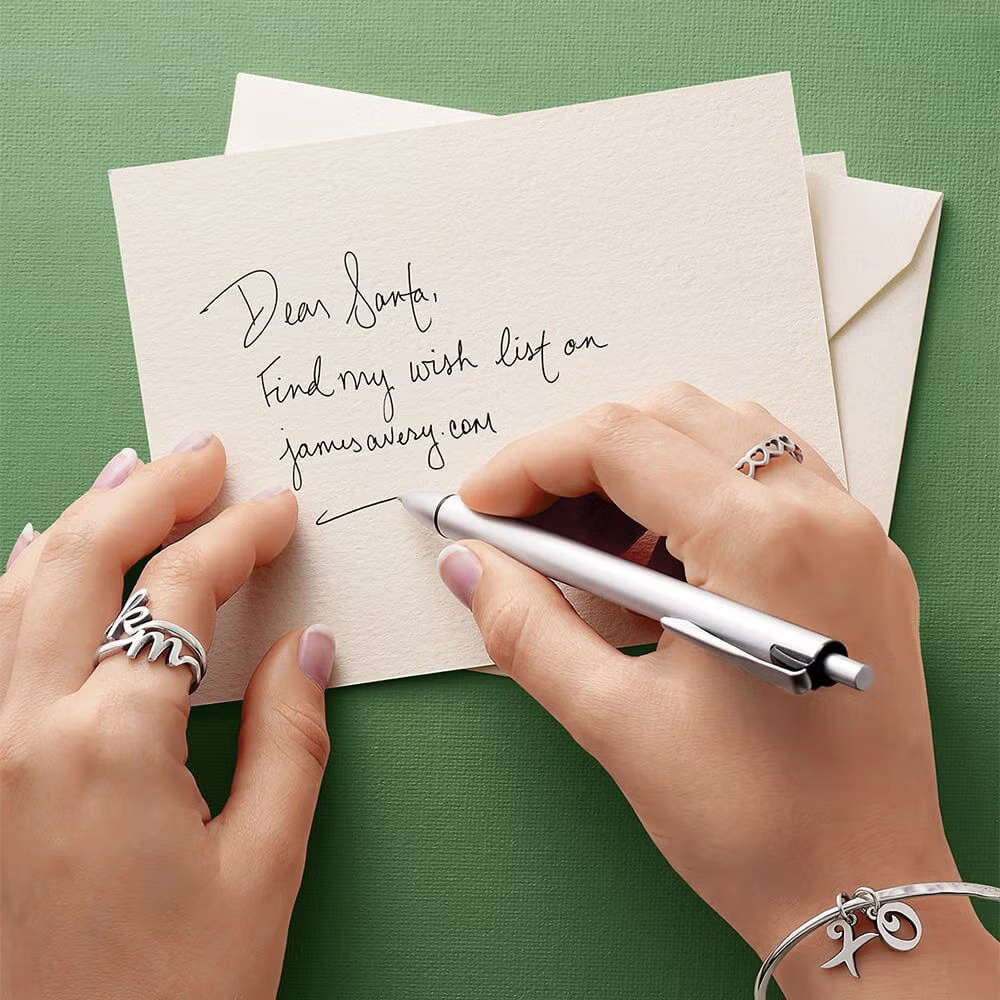 Dear Santa,
Find my wish list on
jamesavery.com
km
XO